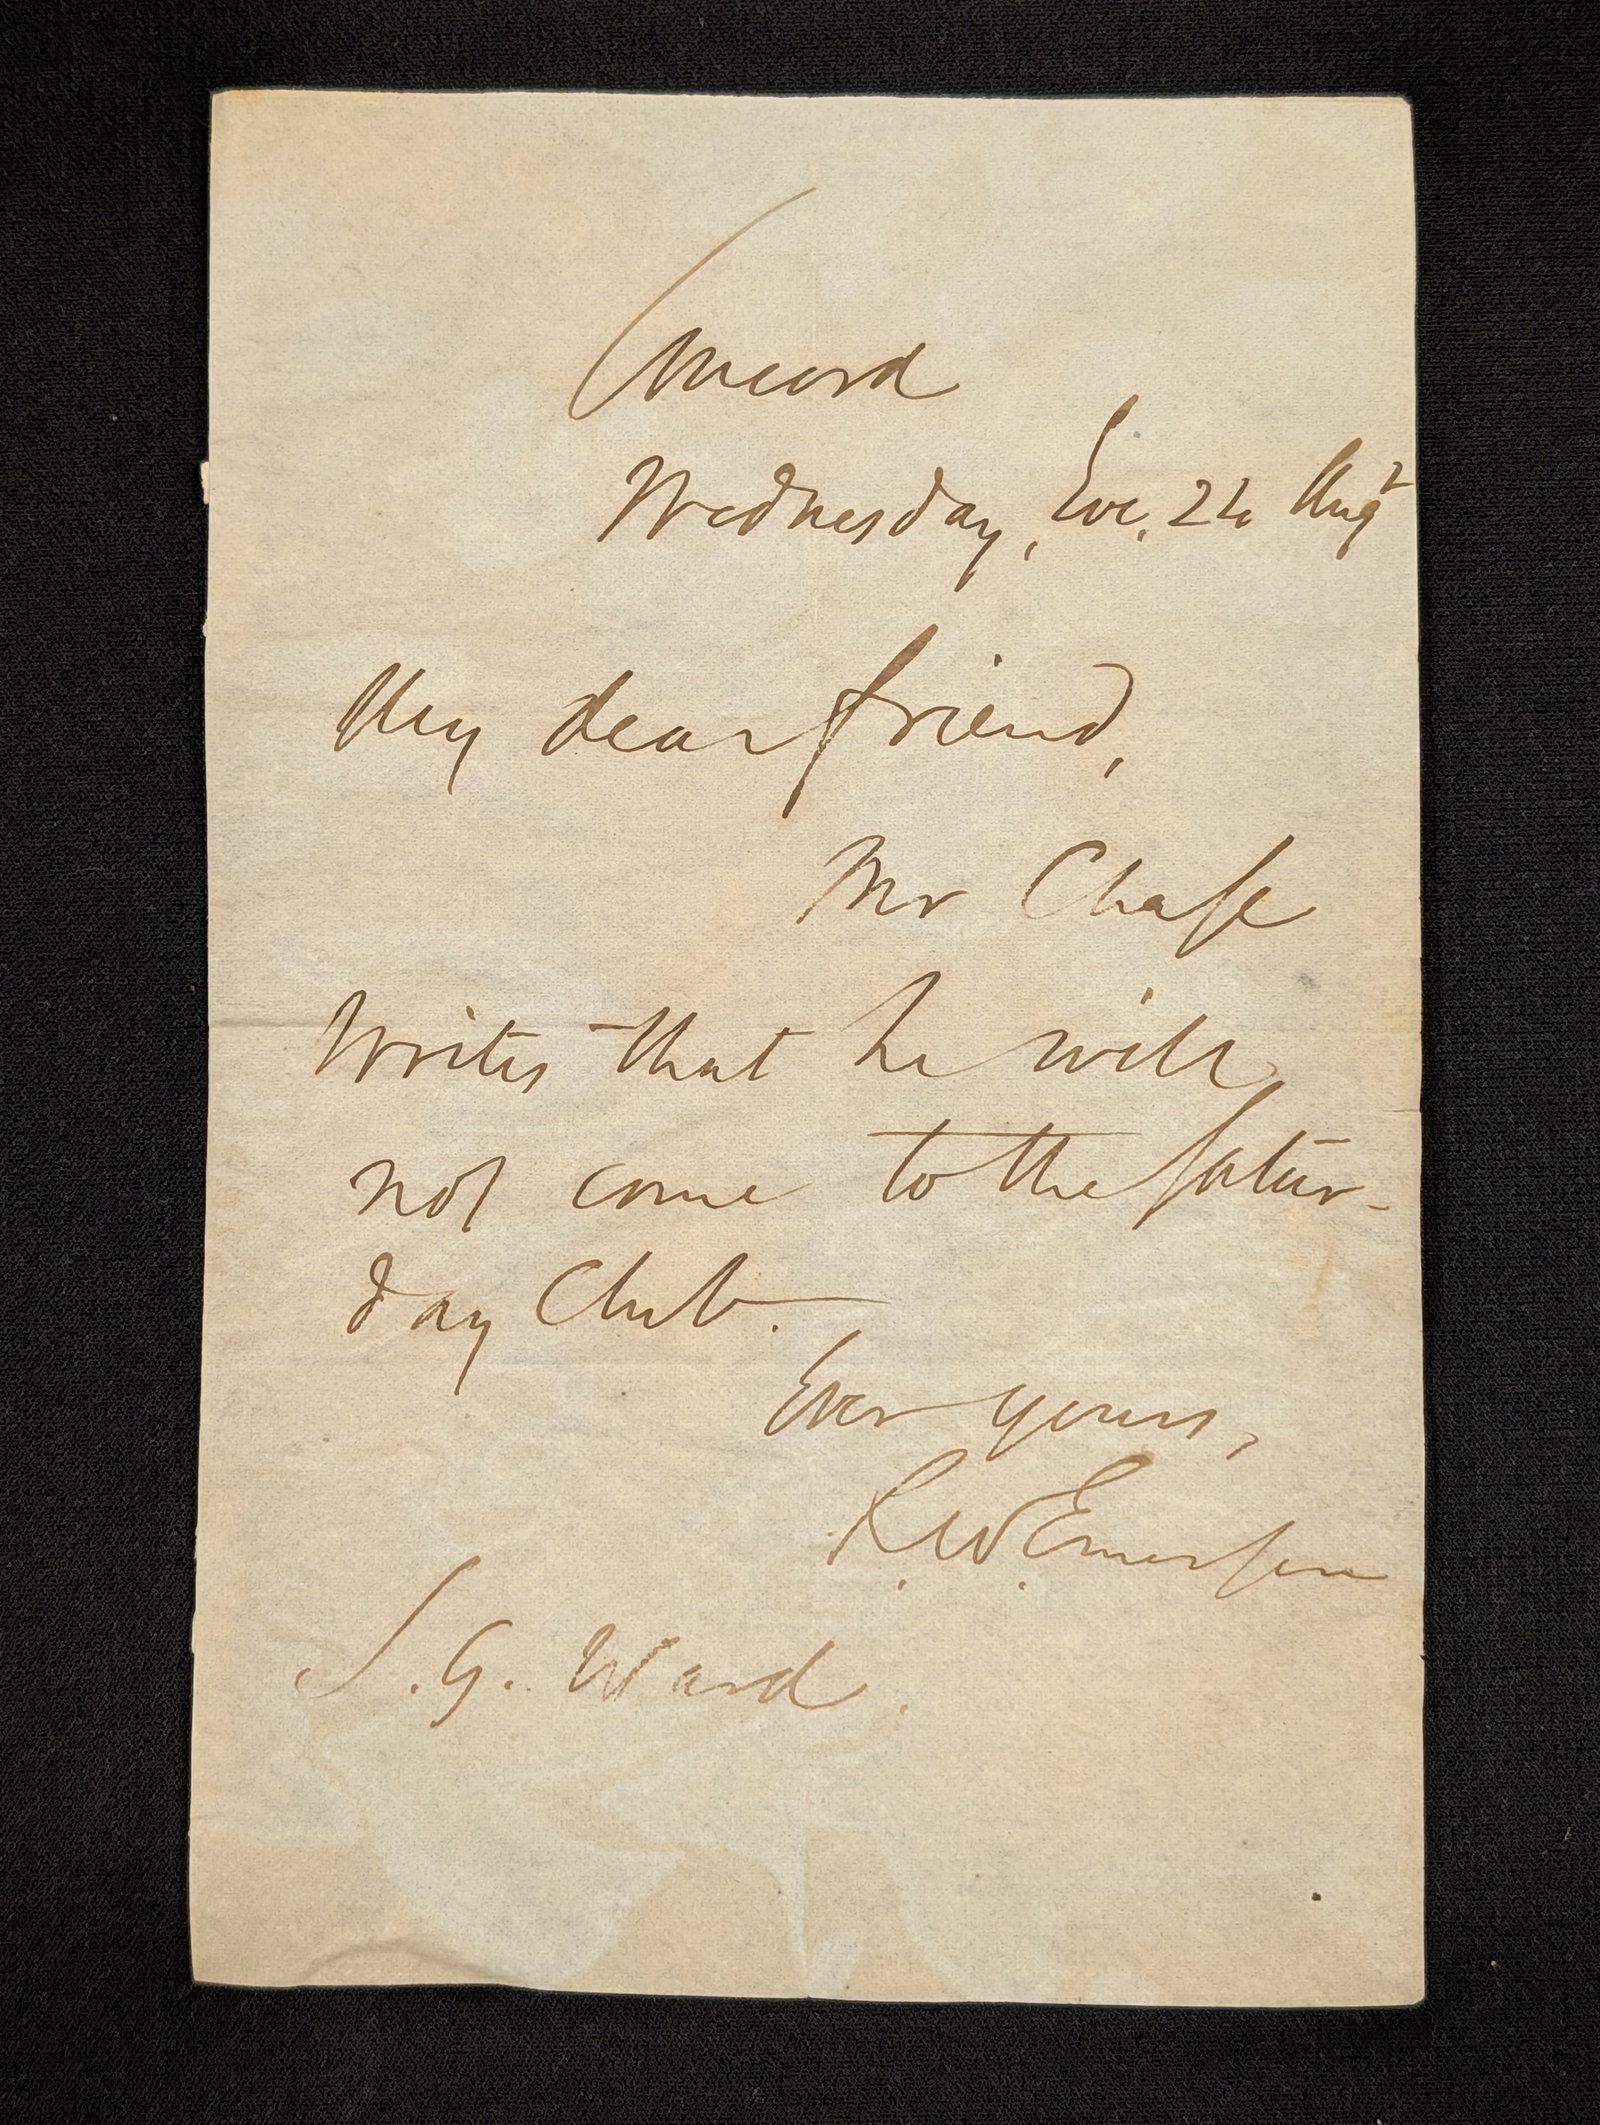 Concord
Wednesday, Eve, 24 Augt
My dear friend,
Mr Chase
writes that he will
not come to the Satur-
day Club.
Ever yours,
R. W. Emerson
S. G. Ward.